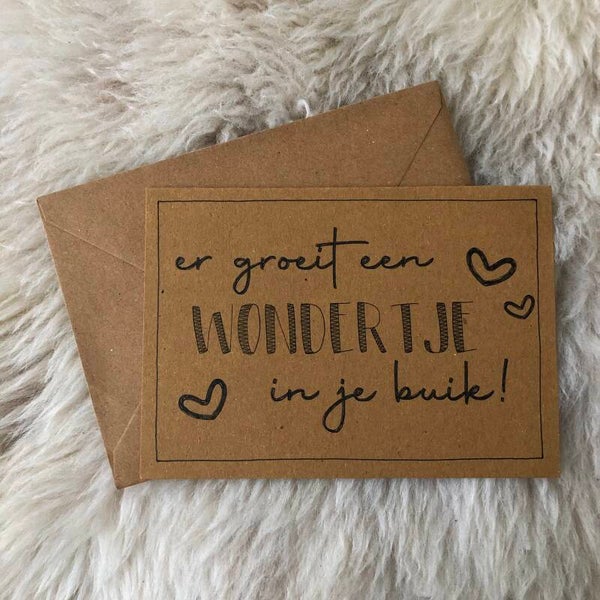 er groeit een
WONDERTJE
in je buik!